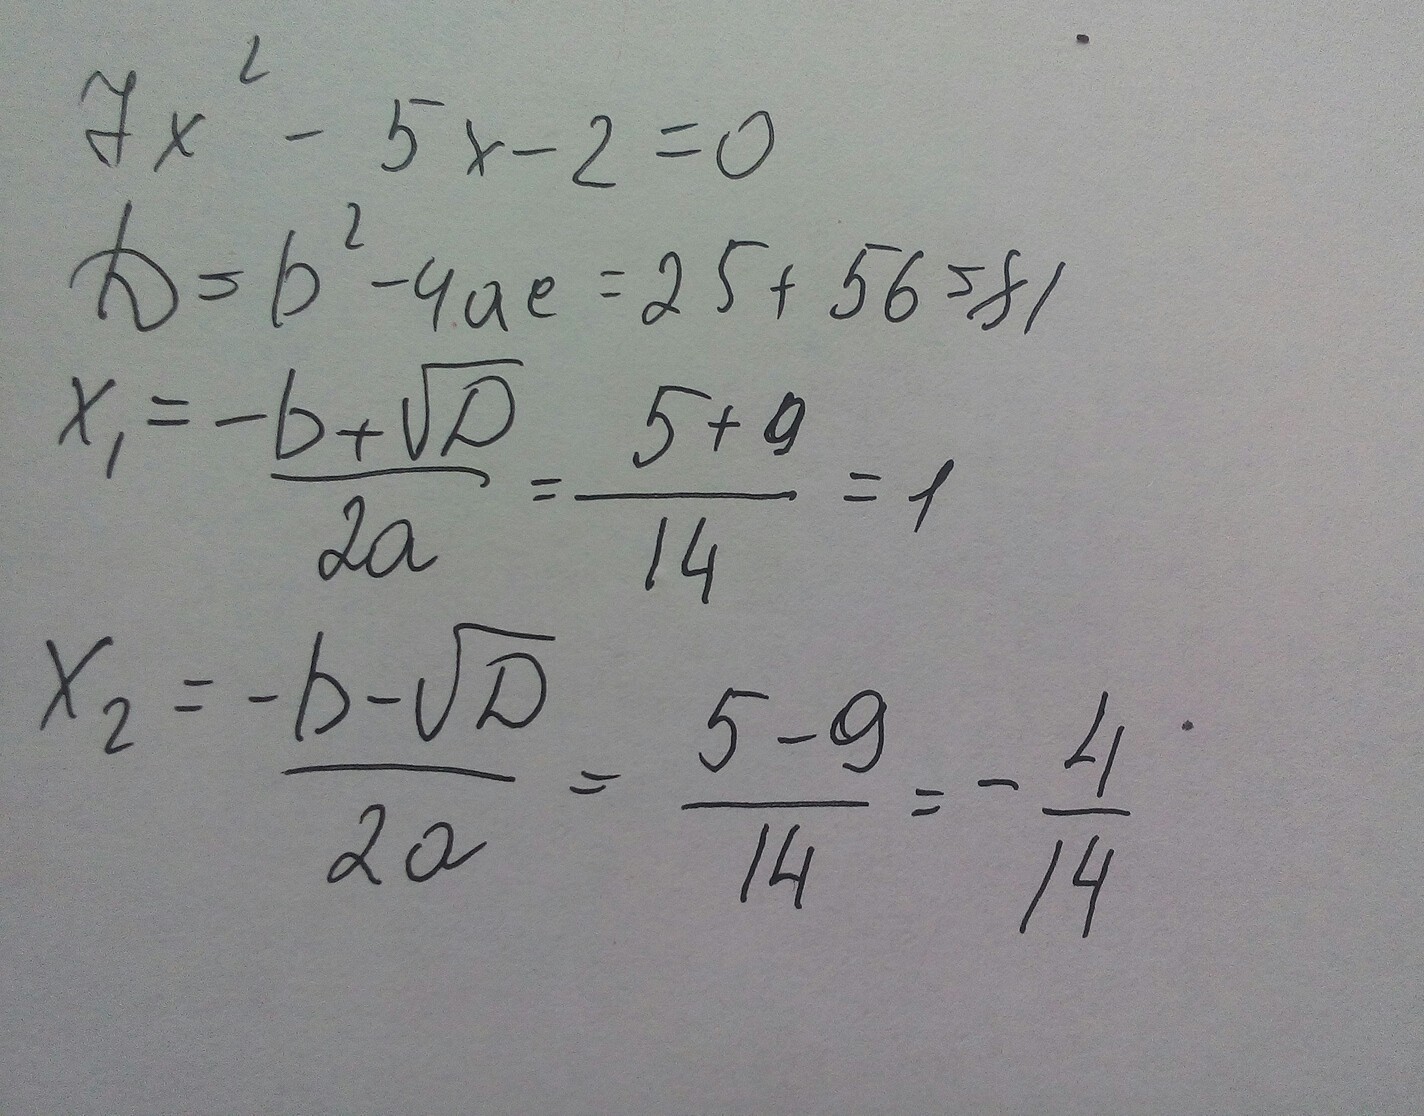 7x² - 5x - 2 = 0
D = b² - 4ac = 25 + 56 = 81
x₁ = -b + √D / 2a = 5 + 9 / 14 = 1
x₂ = -b - √D / 2a = 5 - 9 / 14 = - 4 / 14